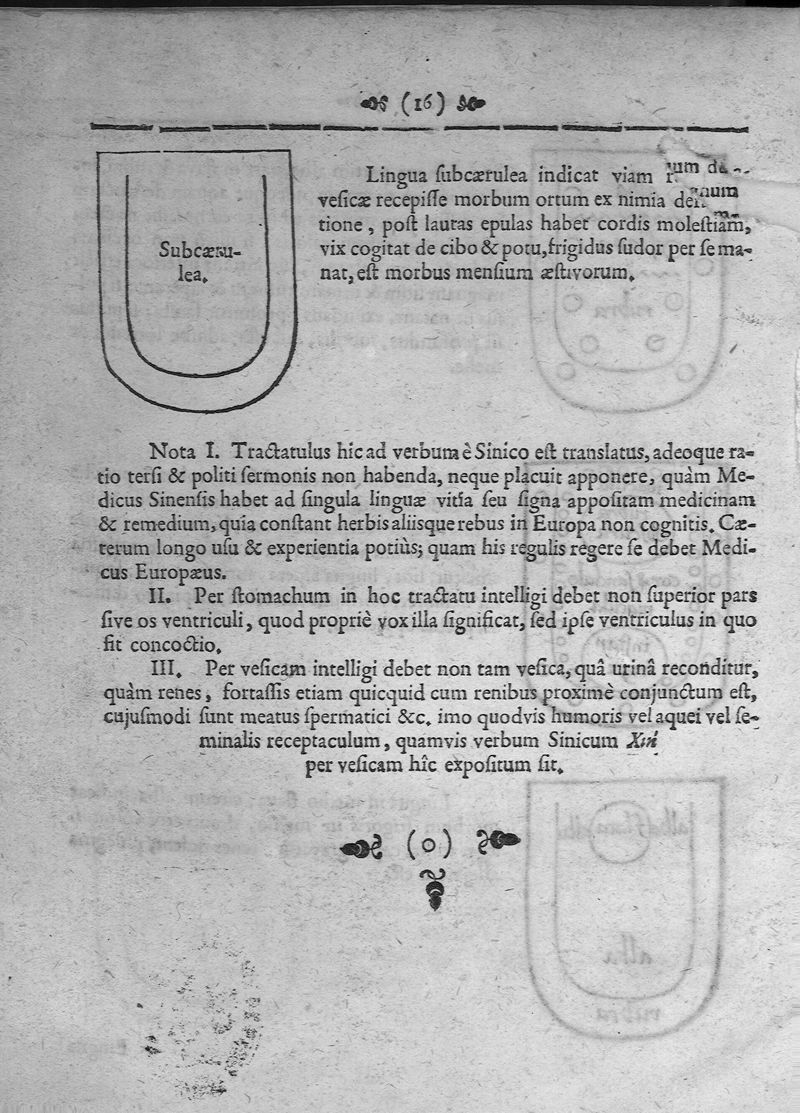 (16)
Subcæru-
lea.
Lingua ſubcærulea indicat viam
veſicæ recepiſſe morbum ortum ex nimia
tione, poſt lautas epulas habet cordis moleſtiam,
vix cogitat de cibo & potu, frigidus ſudor per ſe ma-
nat, eſt morbus menſium æſtivorum.
Nota I. Tractatulus hic ad verbum è Sinico eſt translatus, adeoque ra-
tio terſi & politi ſermonis non habenda, neque placuit apponere, quàm Me-
dicus Sinenſis habet ad ſingula linguæ vitia ſeu ſigna appoſitam medicinam
& remedium, quia conſtant herbis aliisque rebus in Europa non cognitis. Cæ-
terum longo uſu & experientia potiùs; quam his regulis regere ſe debet Medi-
cus Europæus.
II. Per ſtomachum in hoc tractatu intelligi debet non ſuperior pars
ſive os ventriculi, quod propriè vox illa ſignificat, ſed ipſe ventriculus in quo
fit concoctio.
III. Per veſicam intelligi debet non tam veſica, quâ urinâ reconditur,
quàm renes, fortaſſis etiam quicquid cum renibus proximè conjunctum eſt,
cujuſmodi ſunt meatus ſpermatici &c. imo quodvis humoris vel aquei vel ſe-
minalis receptaculum, quamvis verbum Sinicum
per veſicam hîc expoſitum ſit.
(o)